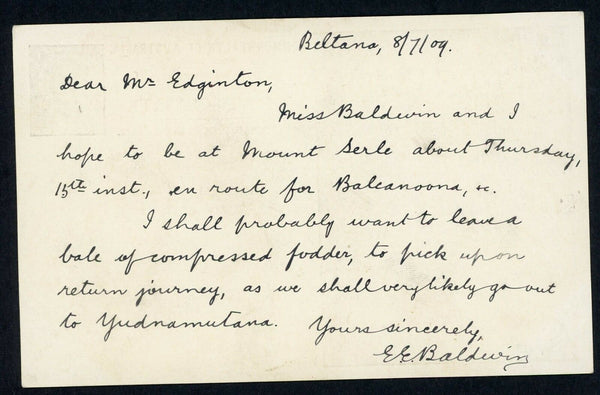 Beltana, 8/7/09.
Dear Mr Edginton,
Miss Baldwin and I
hope to be at Mount Serle about Thursday,
15th inst., en route for Balcanoona, &c.
I shall probably want to leave a
bale of compressed fodder, to pick up on
return journey, as we shall very likely go out
to Yudnamutana. Yours sincerely,
E.E. Baldwin